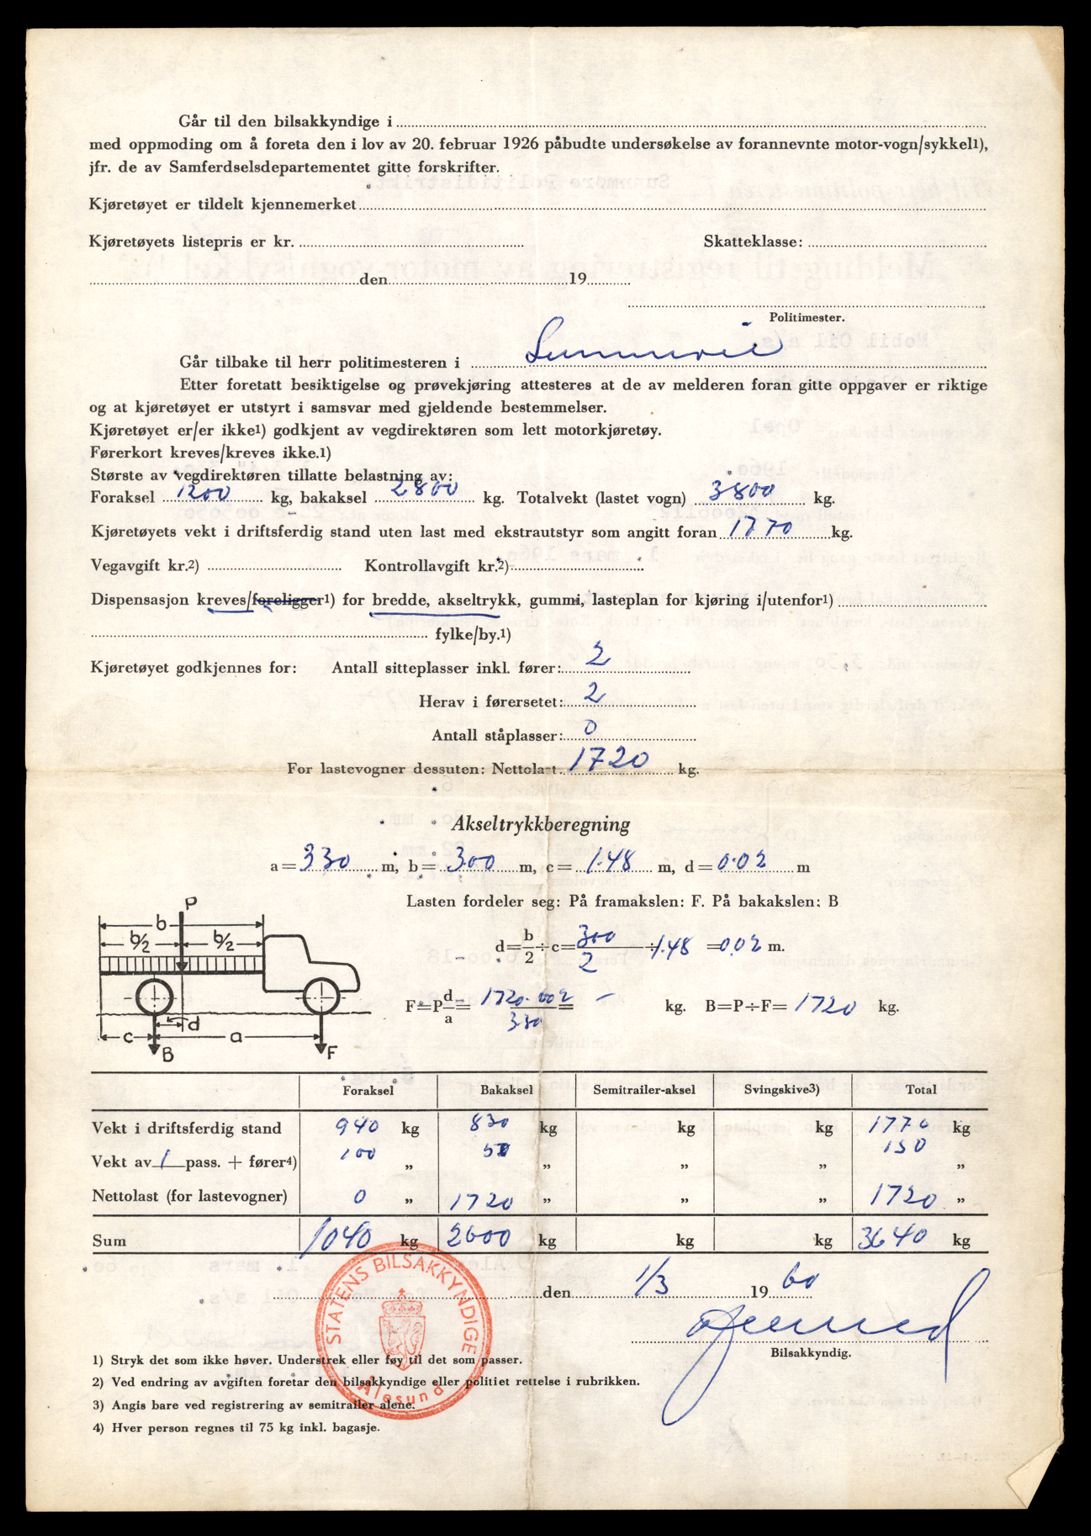 Går til den bilsakkyndige i
med oppmoding om å foreta den i lov av 20. februar 1926 påbudte undersøkelse av forannevnte motor-vogn/sykkel1),
jfr. de av Samferdselsdepartementet gitte forskrifter.
Kjøretøyet er tildelt kjennemerket
Kjøretøyets listepris er kr. Skatteklasse:
den 19
Politimester.
Går tilbake til herr politimesteren i Sunnmøre
Etter foretatt besiktigelse og prøvekjøring attesteres at de av melderen foran gitte oppgaver er riktige
og at kjøretøyet er utstyrt i samsvar med gjeldende bestemmelser.
Kjøretøyet er/er ikke1) godkjent av vegdirektøren som lett motorkjøretøy.
Førerkort kreves/kreves ikke.1)
Største av vegdirektøren tillatte belastning av:
Foraksel 1200 kg, bakaksel 2800 kg. Totalvekt (lastet vogn) 3800 kg.
Kjøretøyets vekt i driftsferdig stand uten last med ekstrautstyr som angitt foran 1770 kg.
Vegavgift kr.2) Kontrollavgift kr.2)
Dispensasjon kreves/foreligger1) for bredde, akseltrykk, gummi, lasteplan for kjøring i/utenfor1)
fylke/by.1)
Kjøretøyet godkjennes for: Antall sitteplasser inkl. fører: 2
Herav i førersetet: 2
Antall ståplasser: 0
For lastevogner dessuten: Nettolast 1720 kg.
Akseltrykkberegning
a = 330 m, b = 300 m, c = 1.48 m, d = 0.02 m
Lasten fordeler seg: På framakslen: F. På bakakslen: B
d = b/2 ÷ c = 300/2 ÷ 1.48 = 0.02 m.
F = P d/a = 1720·002/330 = — kg. B = P ÷ F = 1720 kg.
P
b
b/2 b/2
d
c a
B F
Foraksel Bakaksel Semitrailer-aksel Svingskive3) Total
Vekt i driftsferdig stand 940 kg 830 kg kg kg 1770 kg
Vekt av 1 pass. + fører4) 100 „ 50 „ „ „ 150 „
Nettolast (for lastevogner) 0 „ 1720 „ „ „ 1720 „
Sum 1040 kg 2600 kg kg kg 3640 kg
den 1/3 19 60
STATENS BILSAKKYNDIGE
Ålesund
Bilsakkyndig.
1) Stryk det som ikke høver. Understrek eller føy til det som passer.
2) Ved endring av avgiften foretar den bilsakkyndige eller politiet rettelse i rubrikken.
3) Angis bare ved registrering av semitrailer alene.
4) Hver person regnes til 75 kg inkl. bagasje.